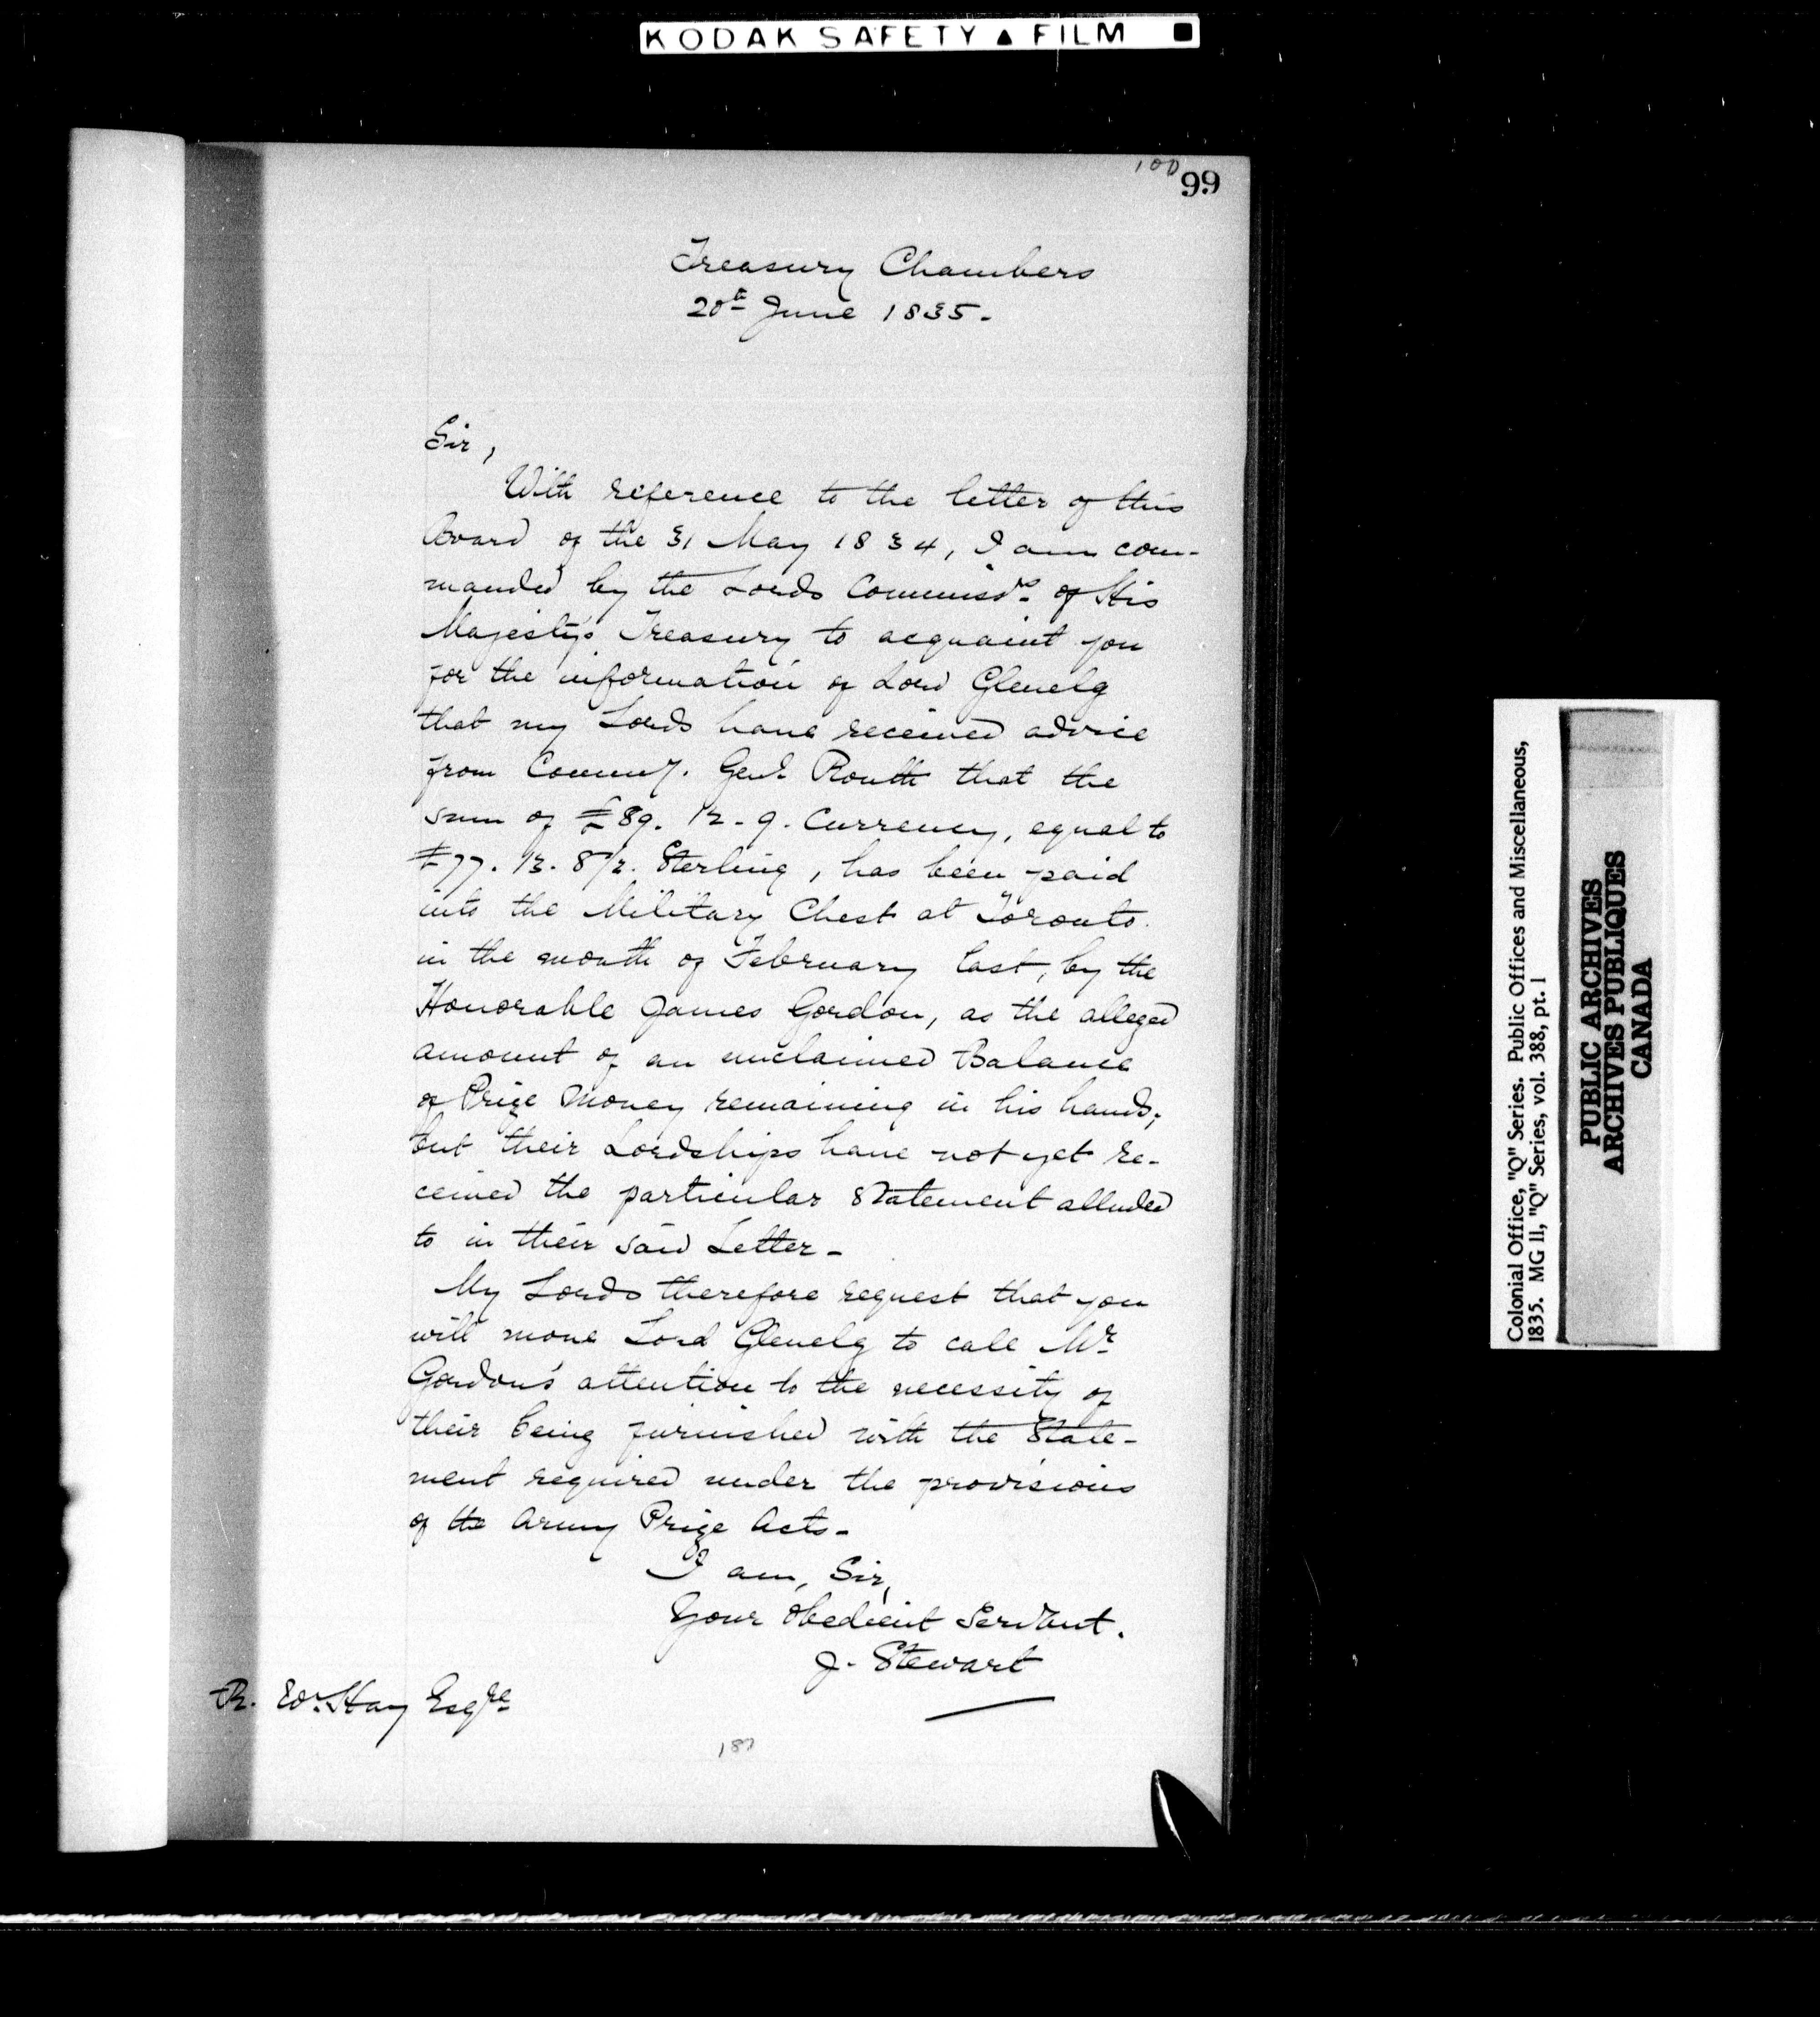 KODAK SAFETY ▲ FILM ■
100
99
Treasury Chambers
20th June 1835.
Sir,
With reference to the letter of this
Board of the 31 May 1834, I am com-
manded by the Lords Commissrs of His
Majesty's Treasury to acquaint you
for the information of Lord Glenelg
that my Lords have received advice
from Commy. Genl. Routh that the
sum of £89. 12. 9. Currency, equal to
£77. 13. 8½. Sterling, has been paid
into the Military Chest at Toronto.
in the month of February last, by the
Honorable James Gordon, as the alleged
amount of an unclaimed Balance
of Prize Money remaining in his hands;
but their Lordships have not yet re-
ceived the particular statement alluded
to in their said Letter -
My Lords therefore request that you
will move Lord Glenelg to call Mr
Gordon's attention to the necessity of
their being furnished with the State-
ment required under the provisions
of the Army Prize Acts -
I am, Sir,
Your Obedient Servant.
J. Stewart
R. W. Hay Esqre
187
Colonial Office, "Q" Series. Public Offices and Miscellaneous,
1835. MG 11, "Q" Series, vol. 388, pt. 1
PUBLIC ARCHIVES
ARCHIVES PUBLIQUES
CANADA